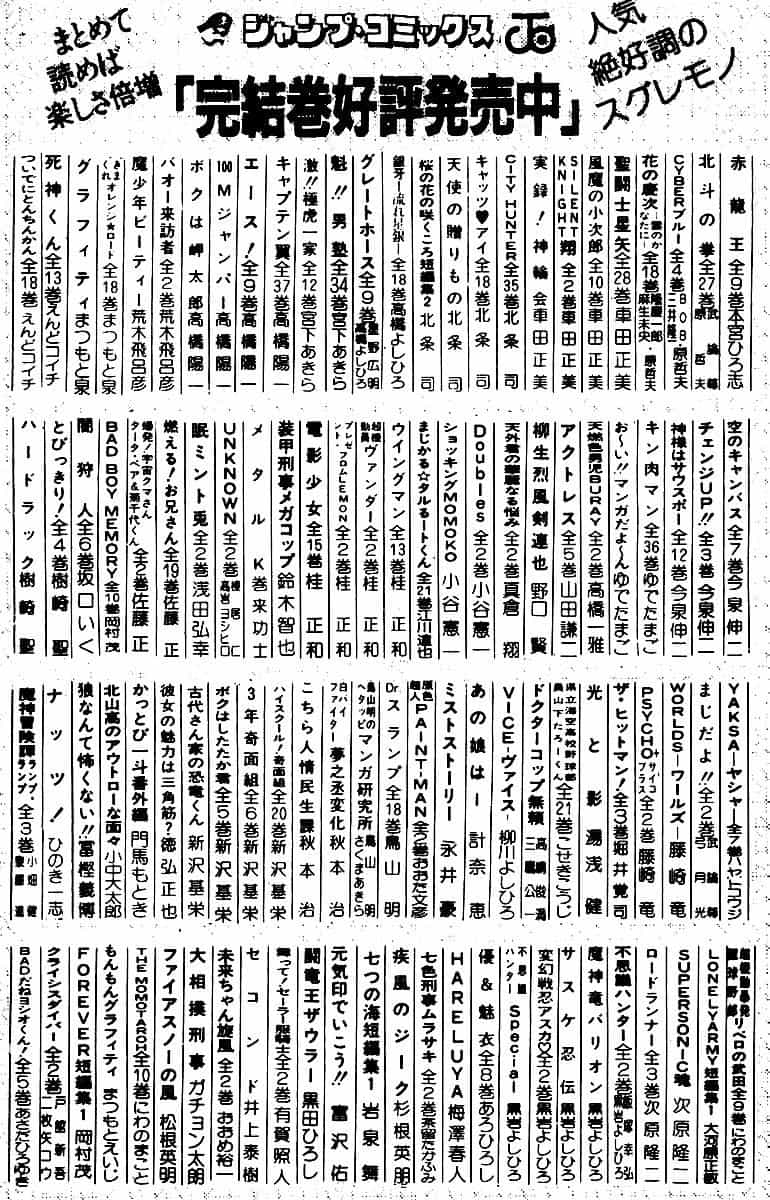 まとめて
読めば
楽しさ倍増
ジャンプ・コミックス
人気
絶好調の
スグレモノ
「完結巻好評発売中」
赤龍王 全9巻 本宮ひろ志
北斗の拳 全27巻 武論尊 原哲夫
CYBERブルー 全4巻 BOB・原哲夫 三井隆一
花の慶次 ―雲のかなたに― 全18巻 隆慶一郎・原哲夫 麻生未央
聖闘士星矢 全28巻 車田正美
風魔の小次郎 全10巻 車田正美
SILENT KNIGHT翔 全2巻 車田正美
実録!神輪会 車田正美
CITY HUNTER 全35巻 北条司
キャッツ♥アイ 全18巻 北条司
天使の贈りもの 北条司
桜の花の咲くころ 短編集2 北条司
銀牙―流れ星 銀― 全18巻 高橋よしひろ
グレートホース 全9巻 星野広明 高橋よしひろ
魁!!男塾 全34巻 宮下あきら
激!!極虎一家 全12巻 宮下あきら
キャプテン翼 全37巻 高橋陽一
エース! 全9巻 高橋陽一
100Mジャンパー 高橋陽一
ボクは岬太郎 高橋陽一
バオー来訪者 全2巻 荒木飛呂彦
魔少年ビーティー 荒木飛呂彦
きまぐれオレンジ☆ロード 全18巻 まつもと泉
グラフィティ まつもと泉
死神くん 全13巻 えんどコイチ
ついでにとんちんかん 全18巻 えんどコイチ
空のキャンバス 全7巻 今泉伸二
チェンジUP!! 全3巻 今泉伸二
神様はサウスポー 全12巻 今泉伸二
キン肉マン 全36巻 ゆでたまご
お〜い!!マンガだよ〜ん ゆでたまご
天燃色男児BURAY 全2巻 高橋一雅
アクトレス 全5巻 山田謙二
柳生烈風剣連也 野口賢
天外君の華麗なる悩み 全2巻 真倉翔
Doubles 全2巻 小谷憲一
ショッキングMOMOKO 小谷憲一
まじかる☆タルるートくん 全21巻 江川達也
ウイングマン 全13巻 桂正和
超機動員ヴァンダー 全2巻 桂正和
プレゼント・フロムLEMON 全2巻 桂正和
電影少女 全15巻 桂正和
装甲刑事メガコップ 鈴木智也
メタルK 巻来功士
UNKNOWN 全2巻 樫居仁 高岩ヨシヒロ
眠ミント兎 全2巻 浅田弘幸
燃える!お兄さん 全19巻 佐藤正
爆発!宇宙クマさん タータ・ベア&満千代くん 全2巻 佐藤正
BAD BOY MEMORY 全10巻 岡村茂
闇狩人 全6巻 坂口いく
とびっきり! 全4巻 樹崎聖
ハードラック 樹崎聖
YAKSA―ヤシャ― 全7巻 ハヤトコウジ
まじだよ!! 全2巻 武論尊 弓月光
WORLDS―ワールズ― 藤崎竜
PSYCHO+ サイコプラス 全2巻 藤崎竜
ザ・ヒットマン! 全3巻 堀井覚司
光と影 湯浅健
県立海空高校野球部員山下たろーくん 全21巻 こせきこうじ
ドクターコップ無頼 高嶋俊満 三鷹公一
VICE―ヴァイス― 柳川よしひろ
あの娘は― 計奈恵
ミストストーリー 永井豪
原色超人PAINT-MAN 全2巻 おおた文彦
Dr.スランプ 全18巻 鳥山明
鳥山明のヘタッピマンガ研究所 鳥山明 さくまあきら
白バイファイター 夢之丞変化 秋本治
こちら人情民生課 秋本治
ハイスクール!奇面組 全20巻 新沢基栄
3年奇面組 全6巻 新沢基栄
ボクはしたたか君 全5巻 新沢基栄
古代さん家の恐竜くん 新沢基栄
彼女の魅力は三角筋? 徳弘正也
かっとび一斗 番外編 門馬もとき
北山高のアウトローな面々 小中大太郎
狼なんて怖くない!! 冨樫義博
ナッツ! ひのき一志
魔神冒険譚ランプ・ランプ 全3巻 小畑健
超機動暴発蹴球野郎 リベロの武田 全9巻 にわのまこと
LONELY ARMY 短編集1 大河原正敏
SUPERSONIC魂 次原隆二
ロードランナー 全3巻 次原隆二
不思議ハンター 全2巻 飯塚幸弘 黒岩よしひろ
魔神竜バリオン 黒岩よしひろ
サスケ忍伝 黒岩よしひろ
変幻戦忍アスカ 全2巻 黒岩よしひろ
不思議ハンターSpecial 黒岩よしひろ
優&魅衣 全8巻 あろひろし
HARELUYA 梅澤春人
七色刑事ムラサキ 全2巻 茶留たかふみ
疾風のジーク 杉根英明
七つの海 短編集1 岩泉舞
元気印でいこう!! 富沢佑
闘竜王ザウラー 黒田ひろし
舞って!セーラー服騎士 全2巻 有賀照人
セコンド 井上泰樹
未来ちゃん旋風 全2巻 おおめ裕一
大相撲刑事 ガチョン太朗
ファイアスノーの風 松根英明
THE MOMOTAROH 全10巻 にわのまこと
もんもんグラフィティ まつもとえいじ
FOREVER 短編集1 岡村茂
クライシスダイバー 全2巻 戸館新吾 二枚矢コウ
BADだねヨシオくん! 全5巻 あさだひろゆき